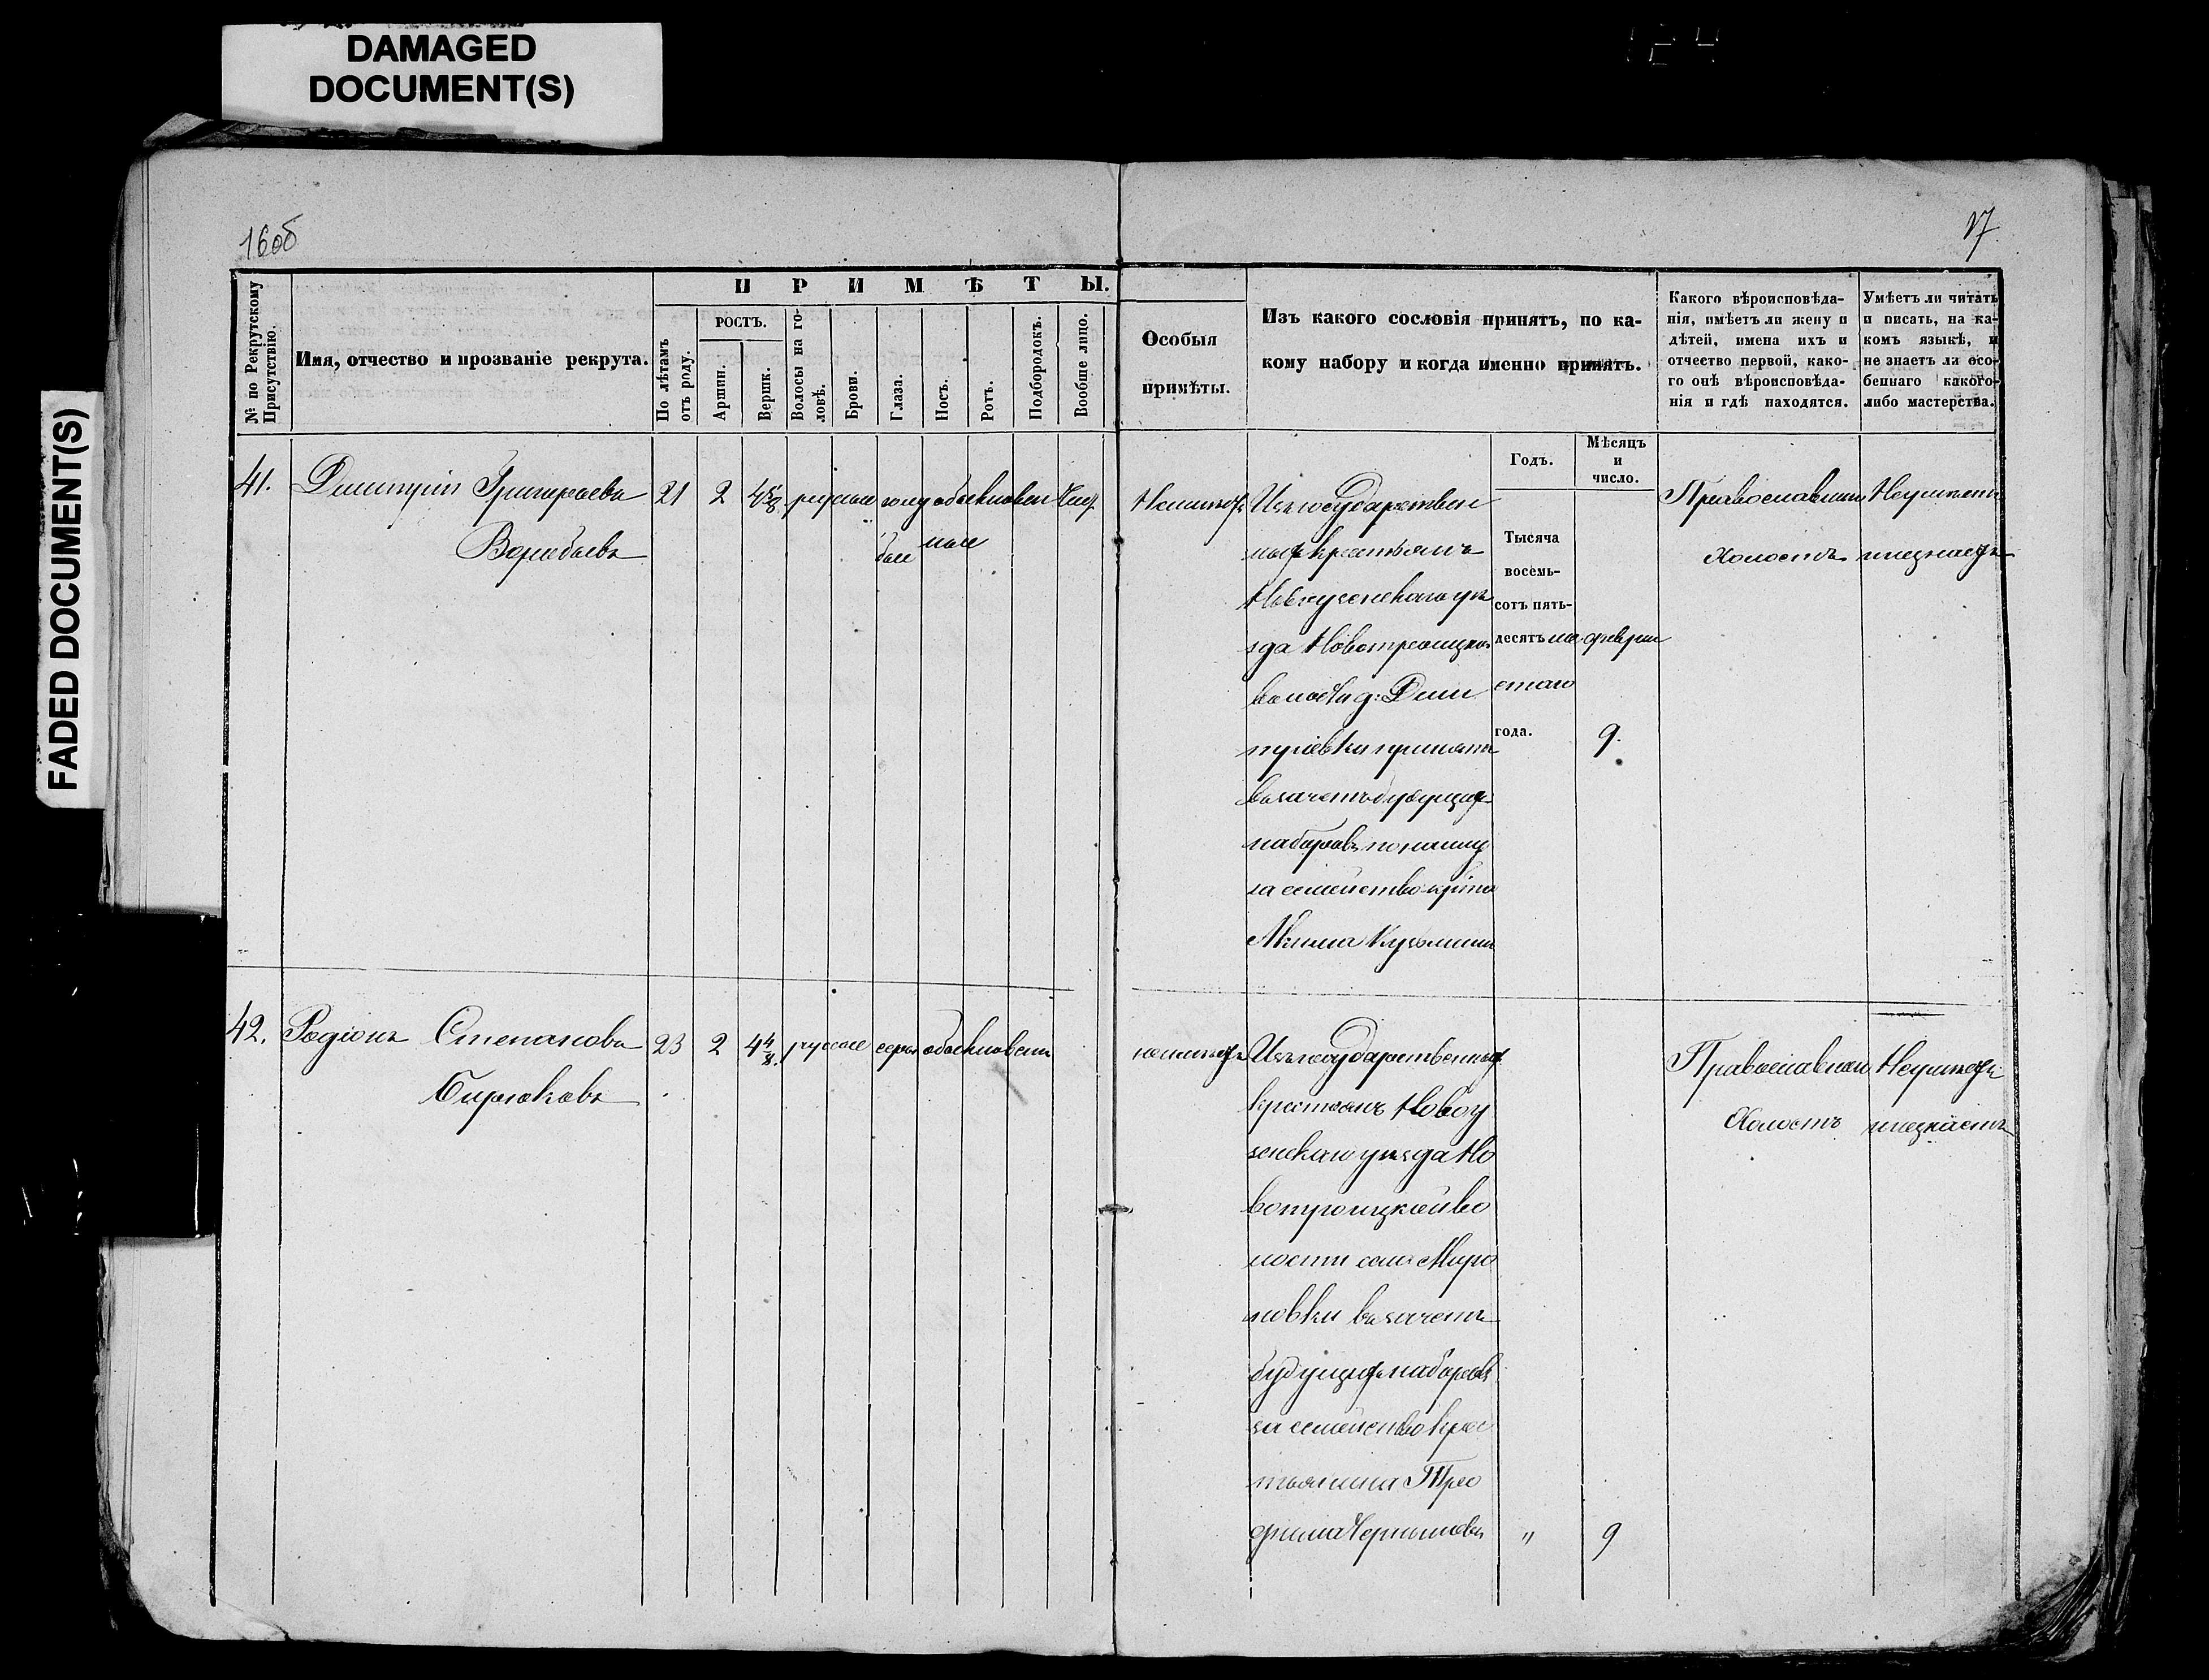 DAMAGED
DOCUMENT(S)
FADED DOCUMENT(S)
124
16об
17.
№ по Рекрутскому Присутствію.
Имя, отчество и прозваніе рекрута.
ПРИМѢТЫ.
По лѣтамъ отъ роду.
РОСТЪ.
Аршин.
Вершк.
Волосы на головѣ.
Брови.
Глаза.
Носъ.
Ротъ.
Подбородокъ.
Вообще лицо.
Особыя
примѣты.
Изъ какого сословія принятъ, по ка-
кому набору и когда именно принятъ.
Какого вѣроисповѣда-
нія, имѣетъ ли жену и
дѣтей, имена ихъ и
отчество первой, како-
го онѣ вѣроисповѣда-
нія и гдѣ находятся.
Умѣетъ ли читать
и писать, на ка-
комъ языкѣ, и
не знаетъ ли осо-
беннаго какого-
либо мастерства.
Годъ.
Мѣсяцъ
и
число.
41.
Дмитрій Григорьевъ
Воробьевъ
21
2
4 5/8
русые
голу
бые
обыкновен
ные
Чист.
Неимѣетъ
Изъ государствен
ныхъ крестьянъ
Новоузенскаго уѣ
зда Новотроицкой
волости д: Дми
тріевки принятъ
въ зачетъ будущихъ
наборовъ по найму
за семейство кр-на
Акима Кузьмина
Тысяча
восемь-
сотъ пять-
десятъ ше
стаго
года.
февраля
9.
Православный
Холостъ
Неумѣетъ
инезнаетъ
42.
Родіонъ Степановъ
Бирюковъ
23
2
4 4/8.
русые
серы
обыкновенн
неимѣетъ
Изъ государственныхъ
крестьянъ Новоу
зенскаго уѣзда Но
вотроицкой во
лости села Миро
новки въ зачетъ
будущихъ наборовъ
за семейство крес
тьянина Тро
фима Чернышова
"
9
Православной
Холостъ
Неумѣетъ
инезнаетъ